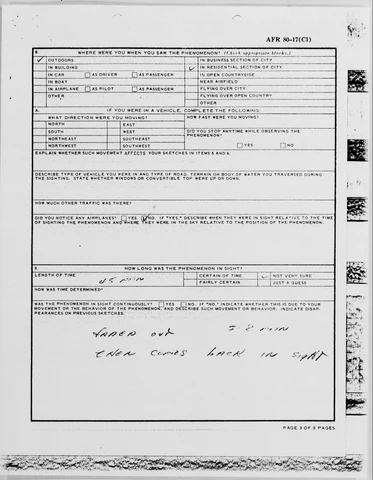 AFR 80-17(C1)
8. WHERE WERE YOU WHEN YOU SAW THE PHENOMENON? (Check appropriate blocks.)
✓ OUTDOORS IN BUSINESS SECTION OF CITY
IN BUILDING ✓ IN RESIDENTIAL SECTION OF CITY
IN CAR AS DRIVER AS PASSENGER IN OPEN COUNTRYSIDE
IN BOAT NEAR AIRFIELD
IN AIRPLANE AS PILOT AS PASSENGER FLYING OVER CITY
OTHER FLYING OVER OPEN COUNTRY
OTHER
A. IF YOU WERE IN A VEHICLE, COMPLETE THE FOLLOWING:
WHAT DIRECTION WERE YOU MOVING? HOW FAST WERE YOU MOVING?
NORTH EAST
SOUTH WEST DID YOU STOP ANYTIME WHILE OBSERVING THE
NORTHEAST SOUTHEAST PHENOMENON?
NORTHWEST SOUTHWEST YES NO
EXPLAIN WHETHER SUCH MOVEMENT AFFECTS YOUR SKETCHES IN ITEMS 5 AND 6.
DESCRIBE TYPE OF VEHICLE YOU WERE IN AND TYPE OF ROAD, TERRAIN OR BODY OF WATER YOU TRAVERSED DURING
THE SIGHTING. STATE WHETHER WINDOWS OR CONVERTIBLE TOP WERE UP OR DOWN.
HOW MUCH OTHER TRAFFIC WAS THERE?
DID YOU NOTICE ANY AIRPLANES? YES NO. IF "YES," DESCRIBE WHEN THEY WERE IN SIGHT RELATIVE TO THE TIME
OF SIGHTING THE PHENOMENON AND WHERE THEY WERE IN THE SKY RELATIVE TO THE POSITION OF THE PHENOMENON.
9. HOW LONG WAS THE PHENOMENON IN SIGHT?
LENGTH OF TIME 45 MIN CERTAIN OF TIME ✓ NOT VERY SURE
FAIRLY CERTAIN JUST A GUESS
HOW WAS TIME DETERMINED?
WAS THE PHENOMENON IN SIGHT CONTINUOUSLY? YES NO. IF "NO," INDICATE WHETHER THIS IS DUE TO YOUR
MOVEMENT OR THE BEHAVIOR OF THE PHENOMENON, AND DESCRIBE SUCH MOVEMENT OR BEHAVIOR. INDICATE DISAP-
PEARANCES ON PREVIOUS SKETCHES.
FADED OUT 5-8 MIN
THEN COMES BACK IN SIGHT
PAGE 3 OF 5 PAGES